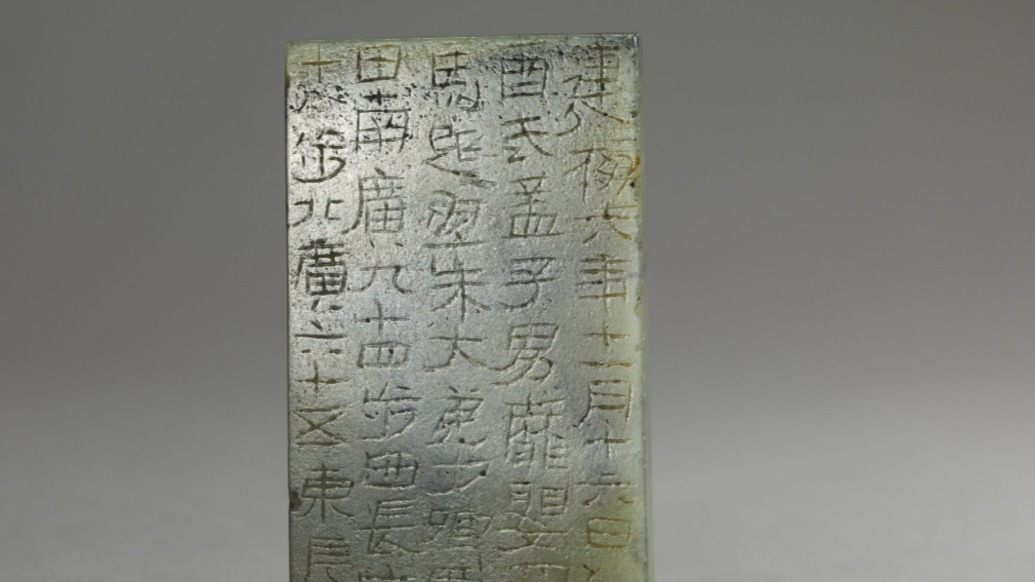 建初六年十一月十六日
酉武孟子男靡嬰
馬起朱大弟少卿
田南廣九十四步西長
十八步北廣六十五東長